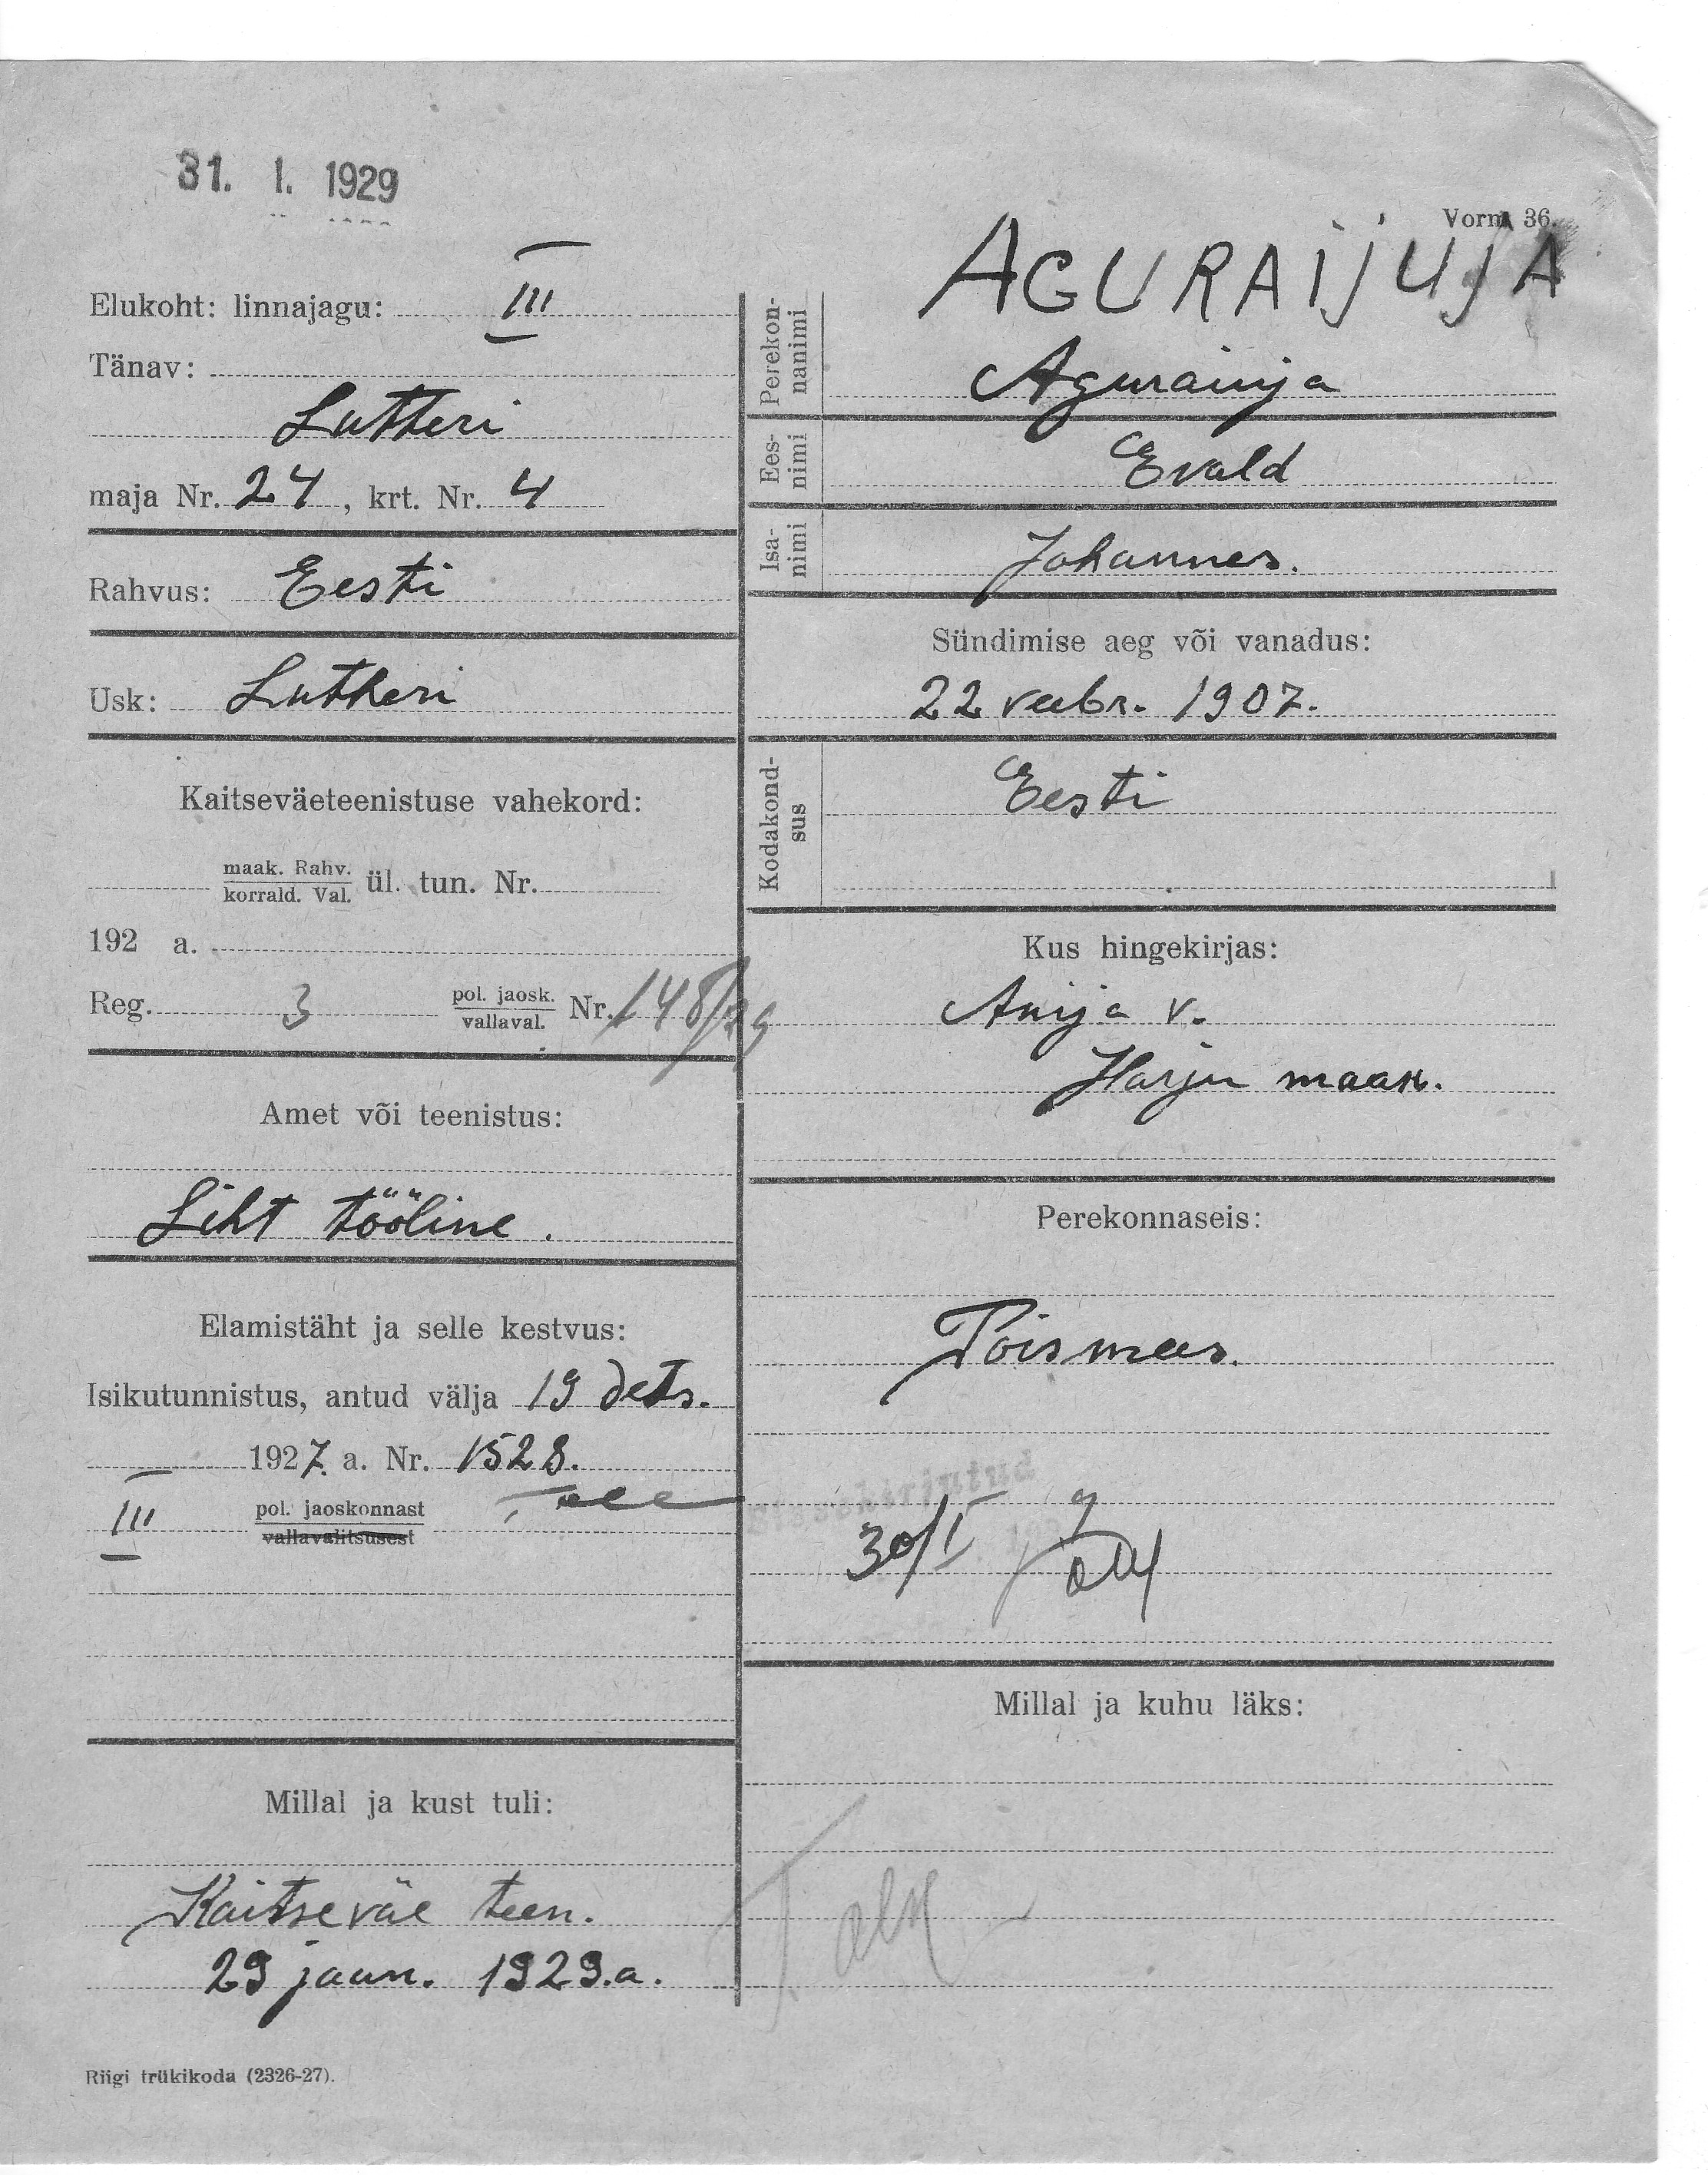 31. I. 1929
Vorm 36.
Elukoht: linnajagu: III
Tänav:
Lutheri
maja Nr. 24, krt. Nr. 4
Rahvus: Eesti
Usk: Lutheri
Kaitseväeteenistuse vahekord:
maak. Rahv.
korrald. Val. ül. tun. Nr.
192 a.
Reg. 3 pol. jaosk.
vallaval. Nr. 148/29
Amet või teenistus:
Liht tööline.
Elamistäht ja selle kestvus:
Isikutunnistus, antud välja 19 dets.
1927. a. Nr. 1528.
III pol. jaoskonnast
vallavalitsusest
Millal ja kust tuli:
Kaitseväe teen.
29 jaan. 1929.a.
Riigi trükikoda (2326-27).
AGURAIJUJA
Perekon-
nanimi
Aguraiuja
Ees-
nimi
Evald
Isa-
nimi
Johannes.
Sündimise aeg või vanadus:
22 veebr. 1907.
Kodakond-
sus
Eesti
Kus hingekirjas:
Anija v.
Harju maak.
Perekonnaseis:
Poismees.
Sissekirjutud
30/I 9
Millal ja kuhu läks: